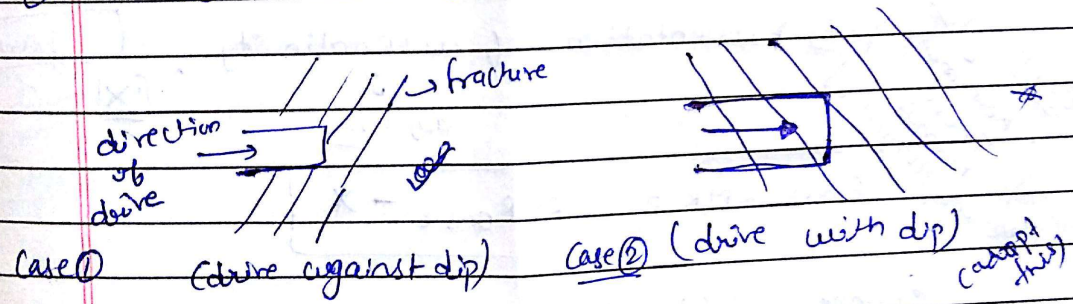 → fracture
direction
of
drive
Case ① (drive against dip)
Case ② (drive with dip)
(adopt this)